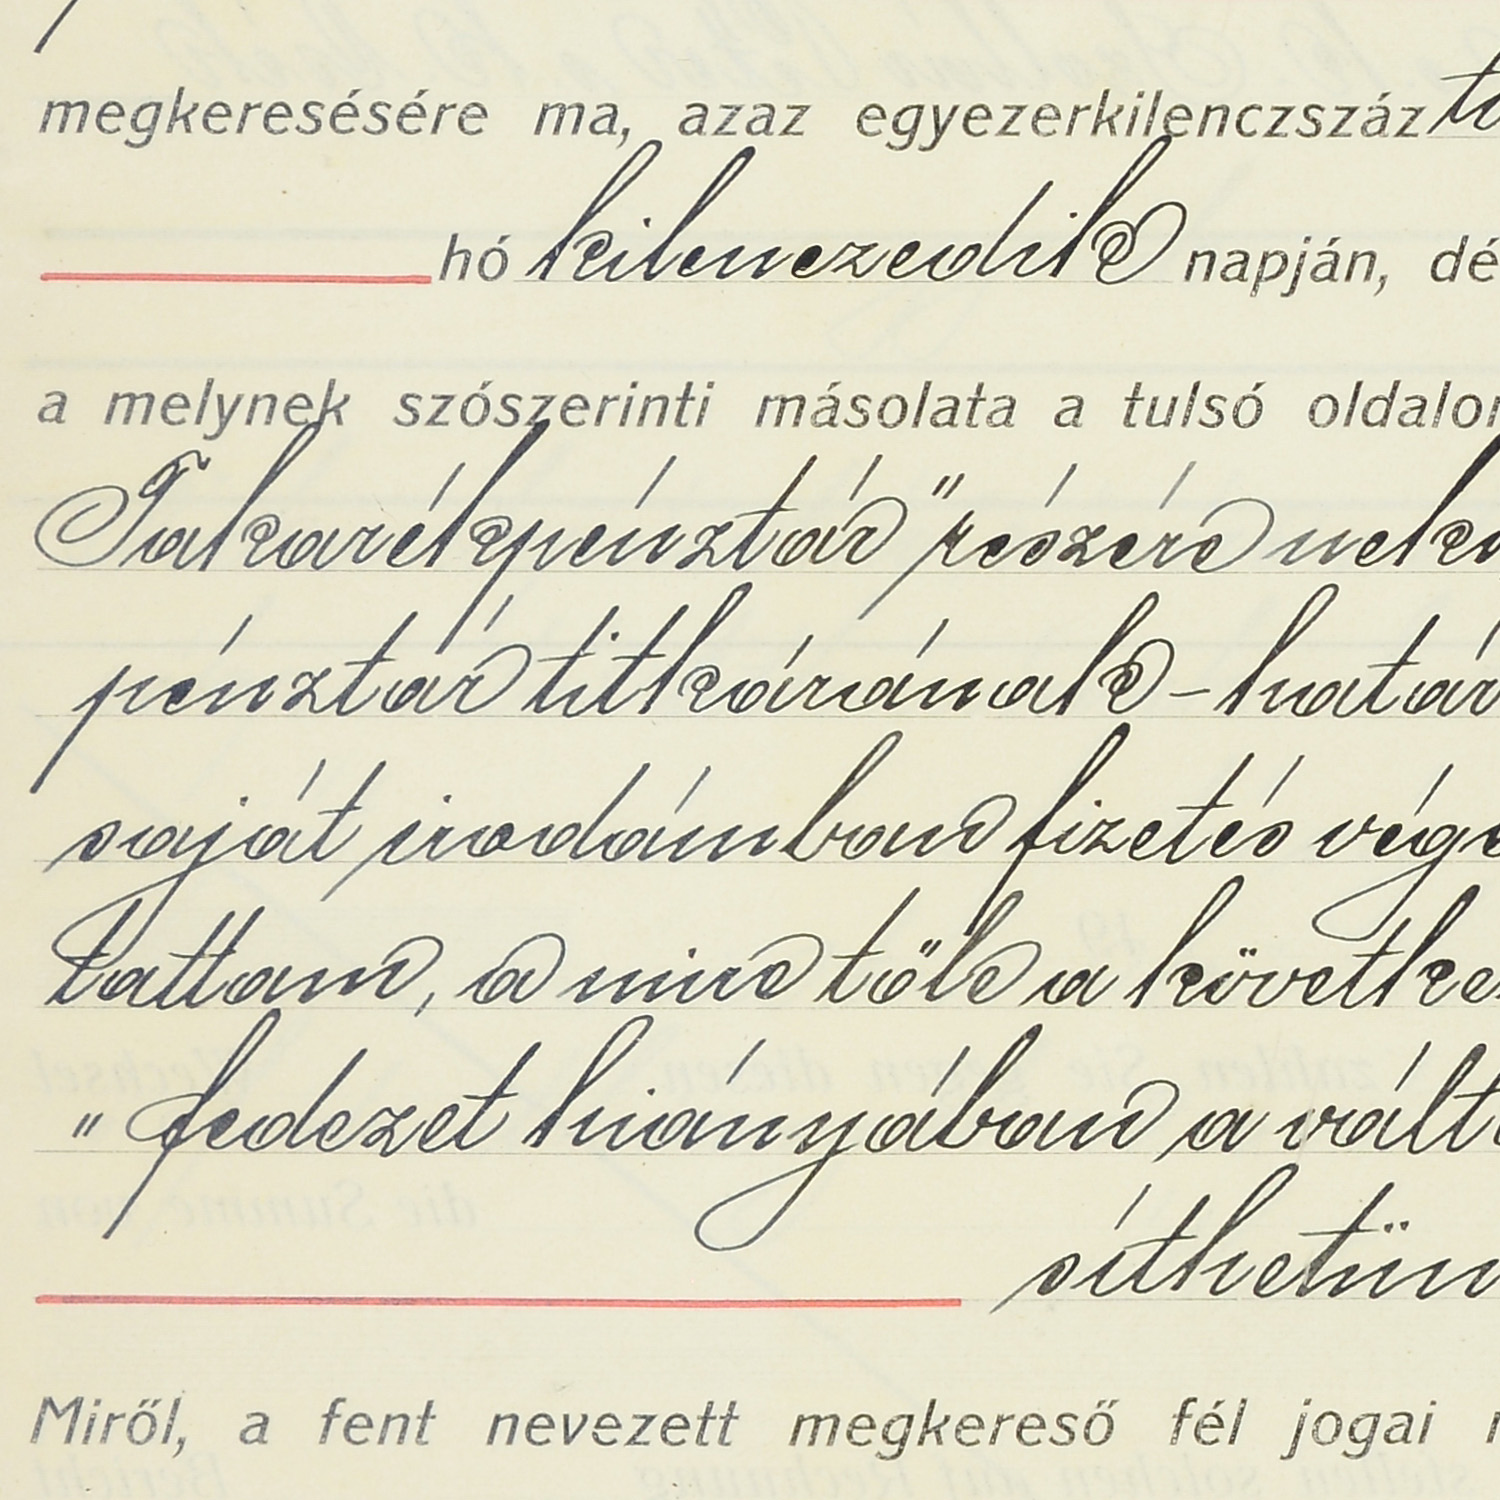 megkeresésére ma, azaz egyezerkilenczszáz
hó kilenczedik napján, dé
a melynek szószerinti másolata a tulsó oldalon
Takarékpénztár" részére nek
pénztár titkárának - határ
saját irodámban fizetés vége
tattam, a mire tőle a követke
" fedezet hiányában a vált
sithetün
Miről, a fent nevezett megkereső fél jogai